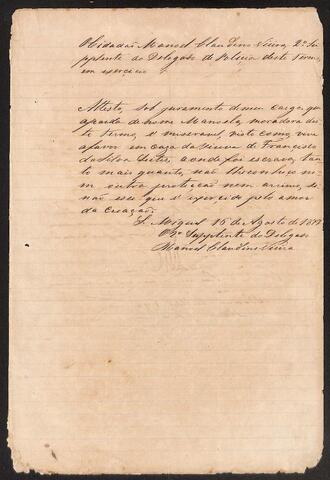 O Cidadão Manoel Claudino Vieira, 2º Su
pplente do Delegado de Policia deste Termo,
em exercicio
Attesto, sob juramento de meu cargo, que
a parda de nome Manoela, moradora des
te termo, é miseravel, visto como vive
a favor em caza da viuva de Francisco
da Silva Leite, aonde foi escrava, tan
to mais quanto, não lhe conheço ne
m outra protecção nem arrimo, se
não esse que é exercido pelo amor
da creação.
S. Miguel 16 de Agosto de
O 2º Supplente do Delegado
Manoel Claudino Vieira